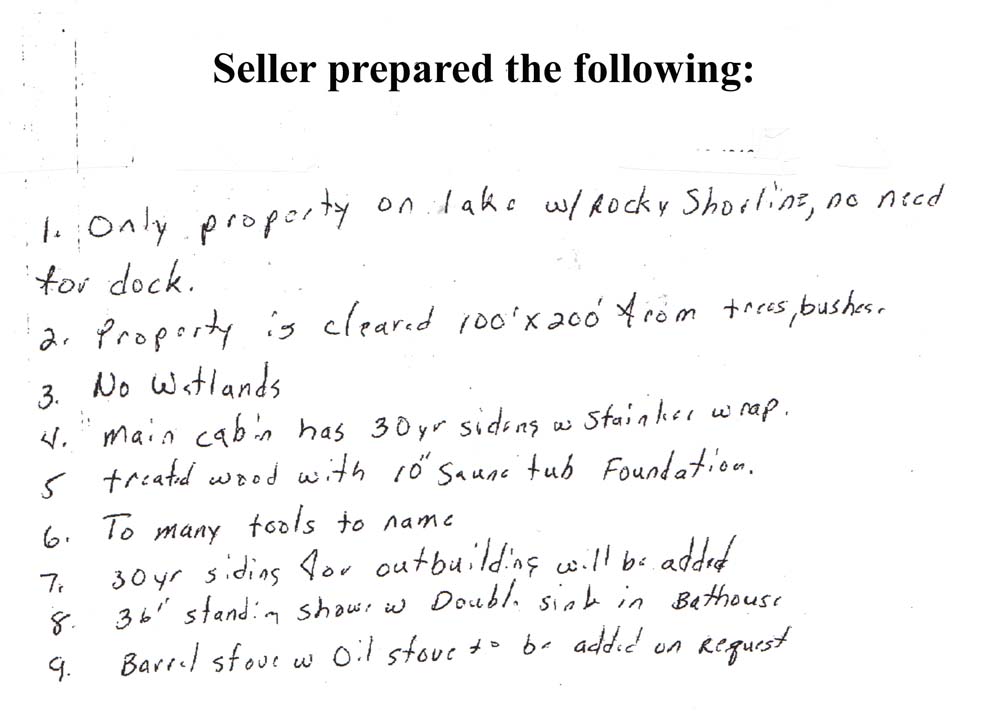 Seller prepared the following:
1. Only property on lake w/ Rocky Shorline, no need
for dock.
2. Property is cleared 100'x200' from trees, bushes.
3. No Wetlands
4. main cabin has 30yr siding w wrap.
5 treated wood with 10" tub Foundation.
6. To many tools to name
7. 30yr siding for outbuilding will be added
8. 36" standing shower w Double sink in Bathouse
9. Barrel stove w Oil stove to be added on Request